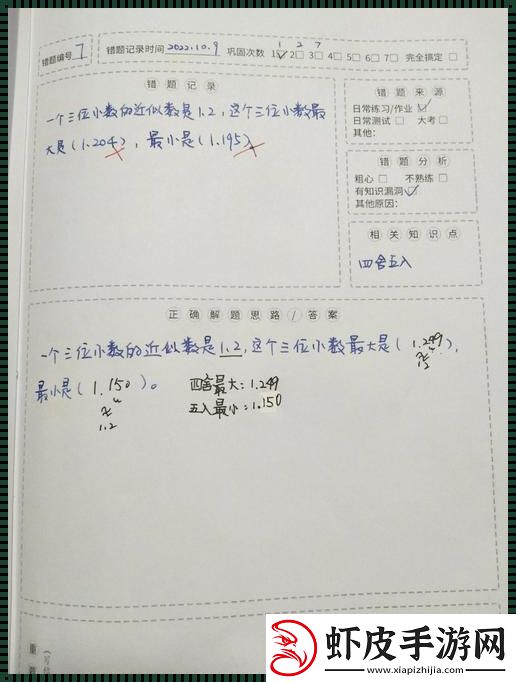 错题编号 7
错题记录时间 2022.10.9 巩固次数 1 2 3 4 5 6 7 完全搞定
1 2 7
错题记录
一个三位小数的近似数是1.2,这个三位小数最
大是(1.204),最小是(1.195)。
错题来源
日常练习/作业
日常测试 大考
其他:
错题分析
粗心 不熟练
有知识漏洞
其他原因:
相关知识点
四舍五入
正确解题思路/答案
一个三位小数的近似数是1.2,这个三位小数最大是(1.249),
≈
1.2
最小是(1.150)。
≈
1.2
四舍最大:1.249
五入最小:1.150
虾皮手游网
www.xiapizhijia.com